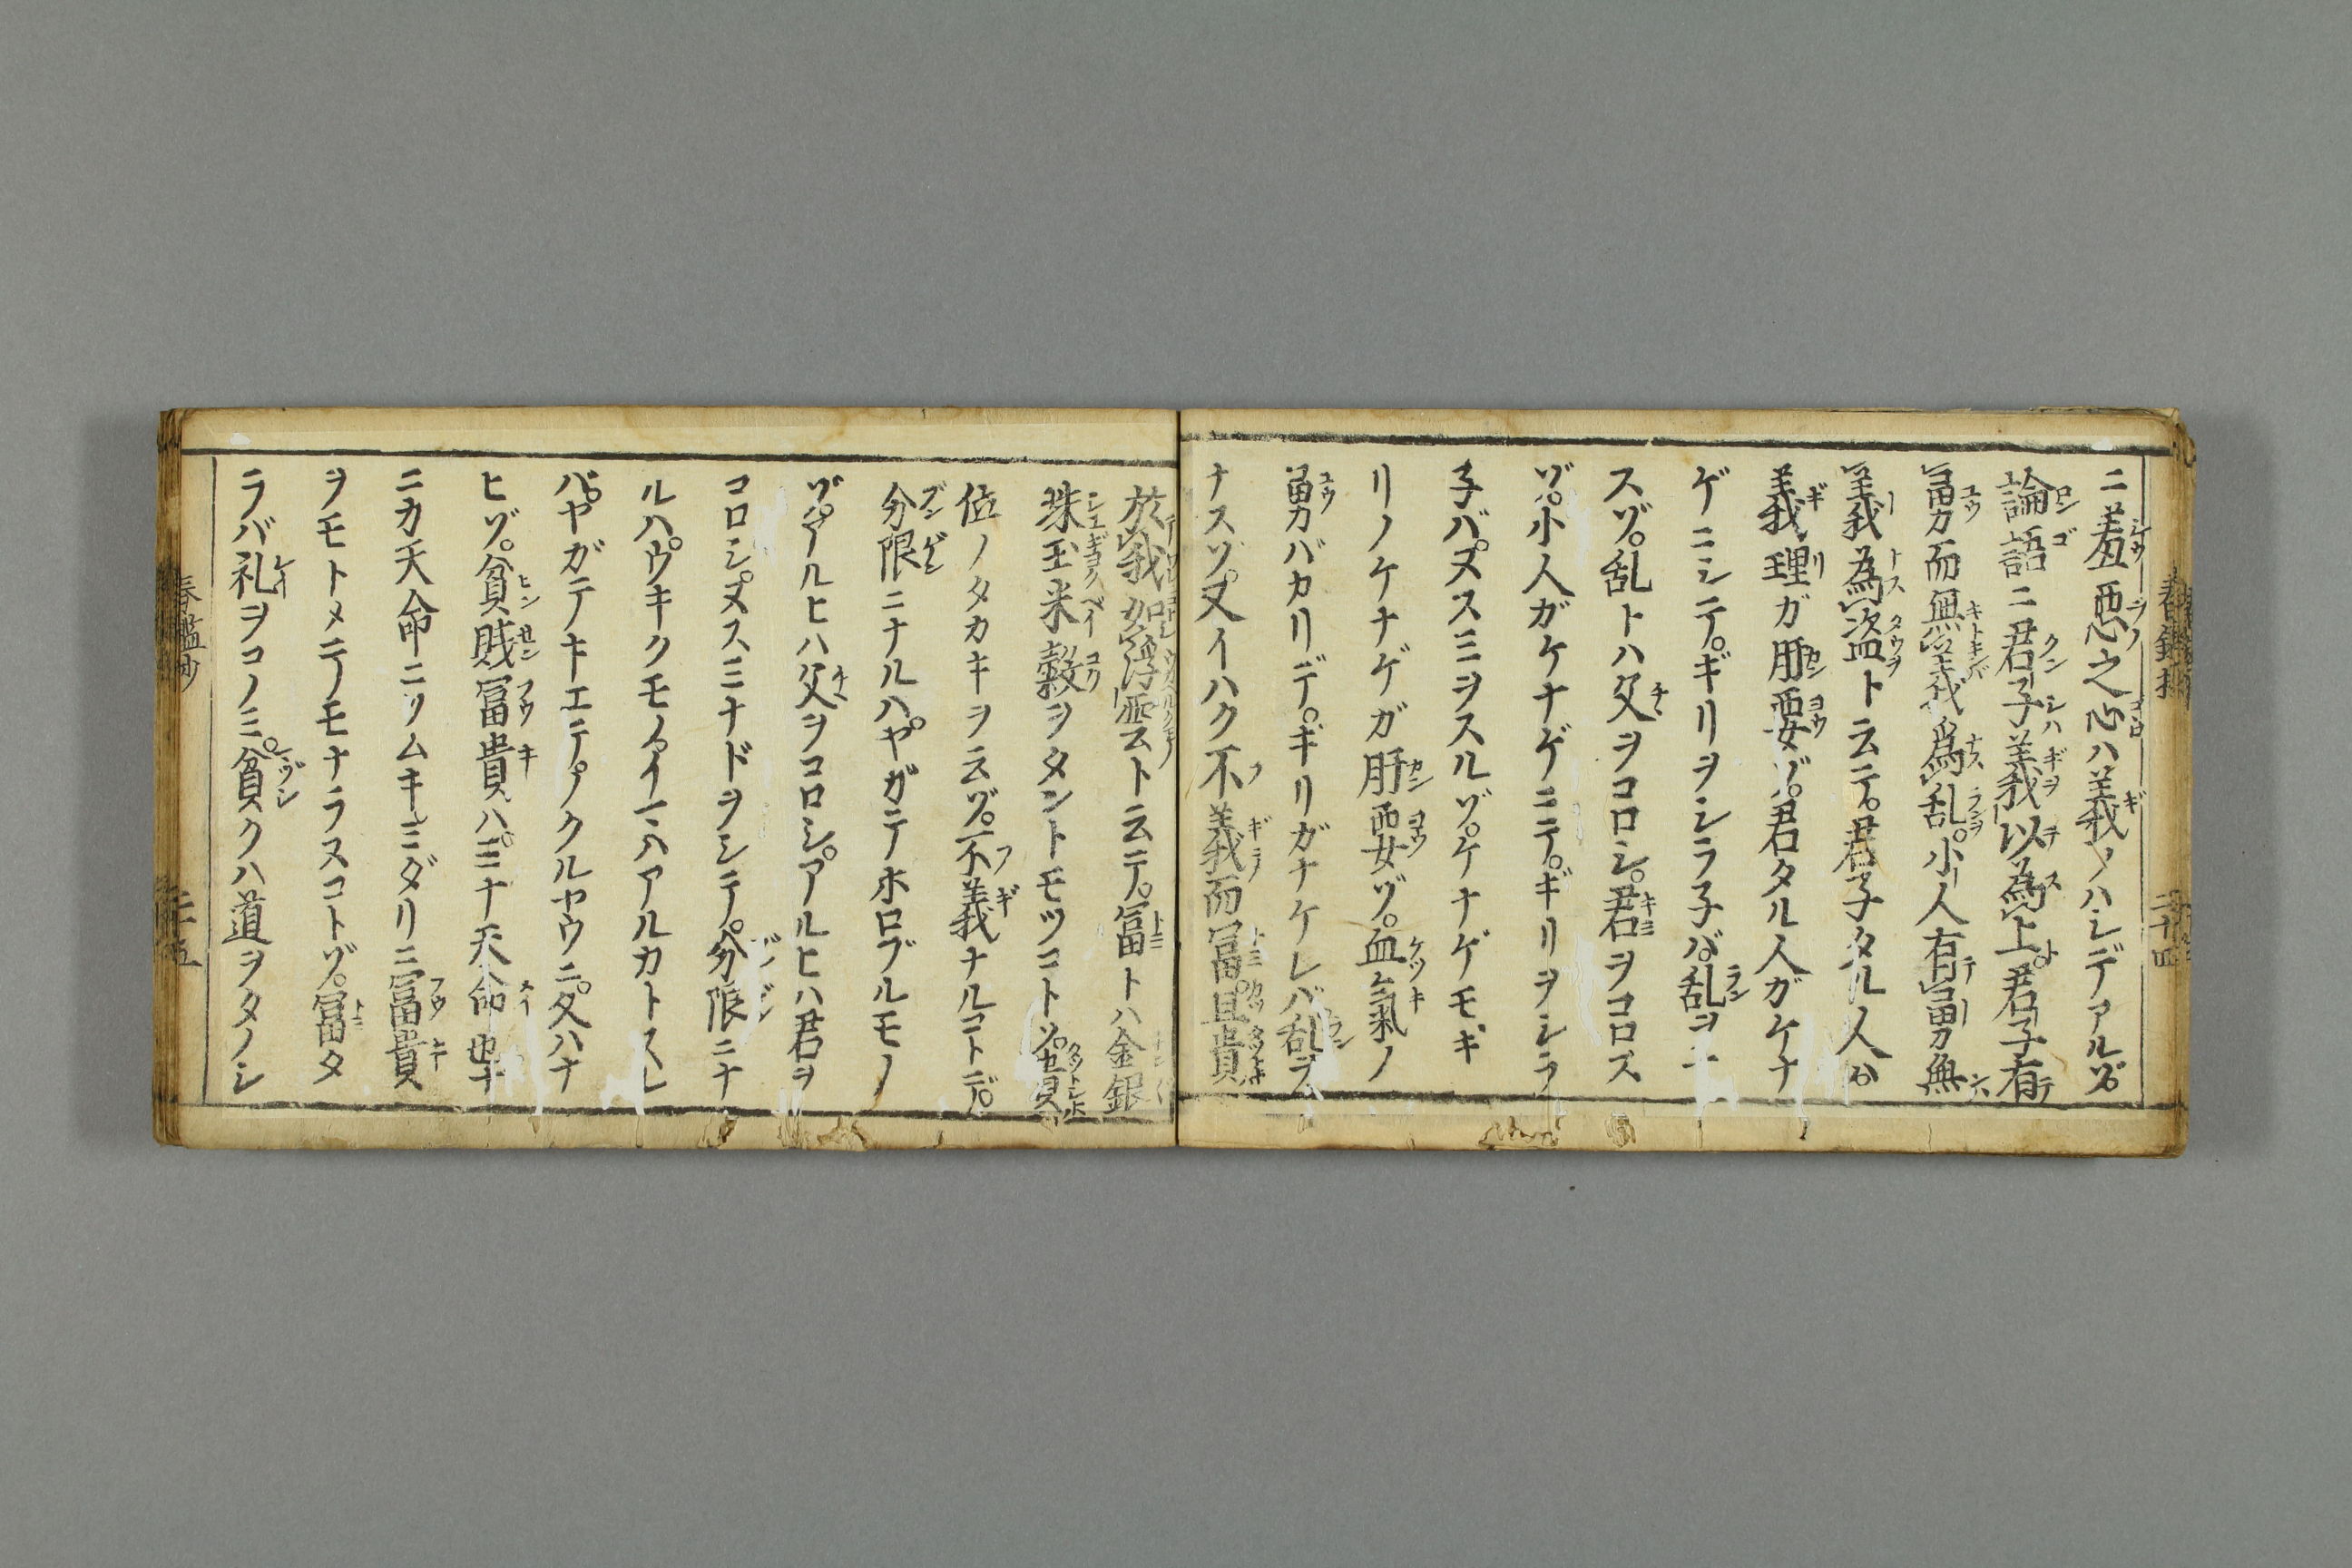 ニ羞悪之心ハ義ノハシデアルゾ
論語ニ君子義以為上。君子有
勇而無義為乱。小人有勇無
義為盗ト云テ。君子タル人ガ
義理ガ肝要ゾ。君タル人ガケナ
ゲニシテ。ギリヲシラ子バ乱ヲナ
スゾ。乱トハ父ヲコロシ。君ヲコロス
ゾ。小人ガケナゲニテ。ギリヲシラ
子バ。ヌスミヲスルゾ。ケナゲモギ
リノケナゲガ肝要ゾ。血氣ノ
勇バカリデ。ギリガナケレバ乱ヲ
ナスゾ。又イハク不義而冨。且貴
於我如浮雲ト云テ。冨トハ金銀
珠玉米穀ヲタントモツコトゾ。貴
位ノタカキヲ云ゾ。不義ナルコトデ。
分限ニナルハ。ヤガテホロブルモノ
ゾ。アルヒハ父ヲコロシ。アルヒハ君ヲ
コロシ。ヌスミナドヲシテ。分限ニナ
ルハ。ウキクモノイハアルカトスレ
バ。ヤガテキエテ。アクルヤウニ。タハナ
ヒゾ。貧賎冨貴ハ。ミナ天命也
ニカ天命ニソムキ。ミダリニ冨貴
ヲモトメテノモナラヌコトゾ。冨タ
ラバ礼ヲコノミ。貧クハ道ヲタノシ
春鑑抄
二十四
春鑑抄
二十五